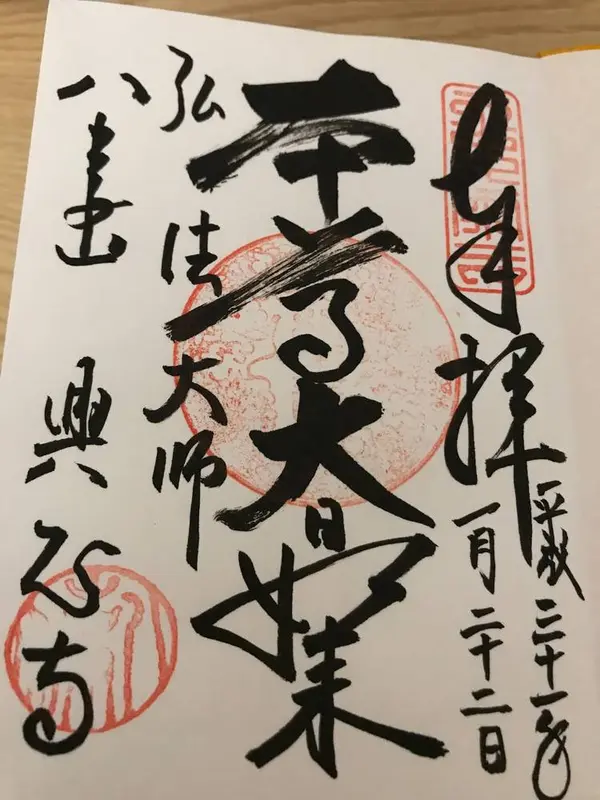 奉拝
平成三十一年
一月二十二日
本尊大日如来
弘法大師
八事山 興正寺